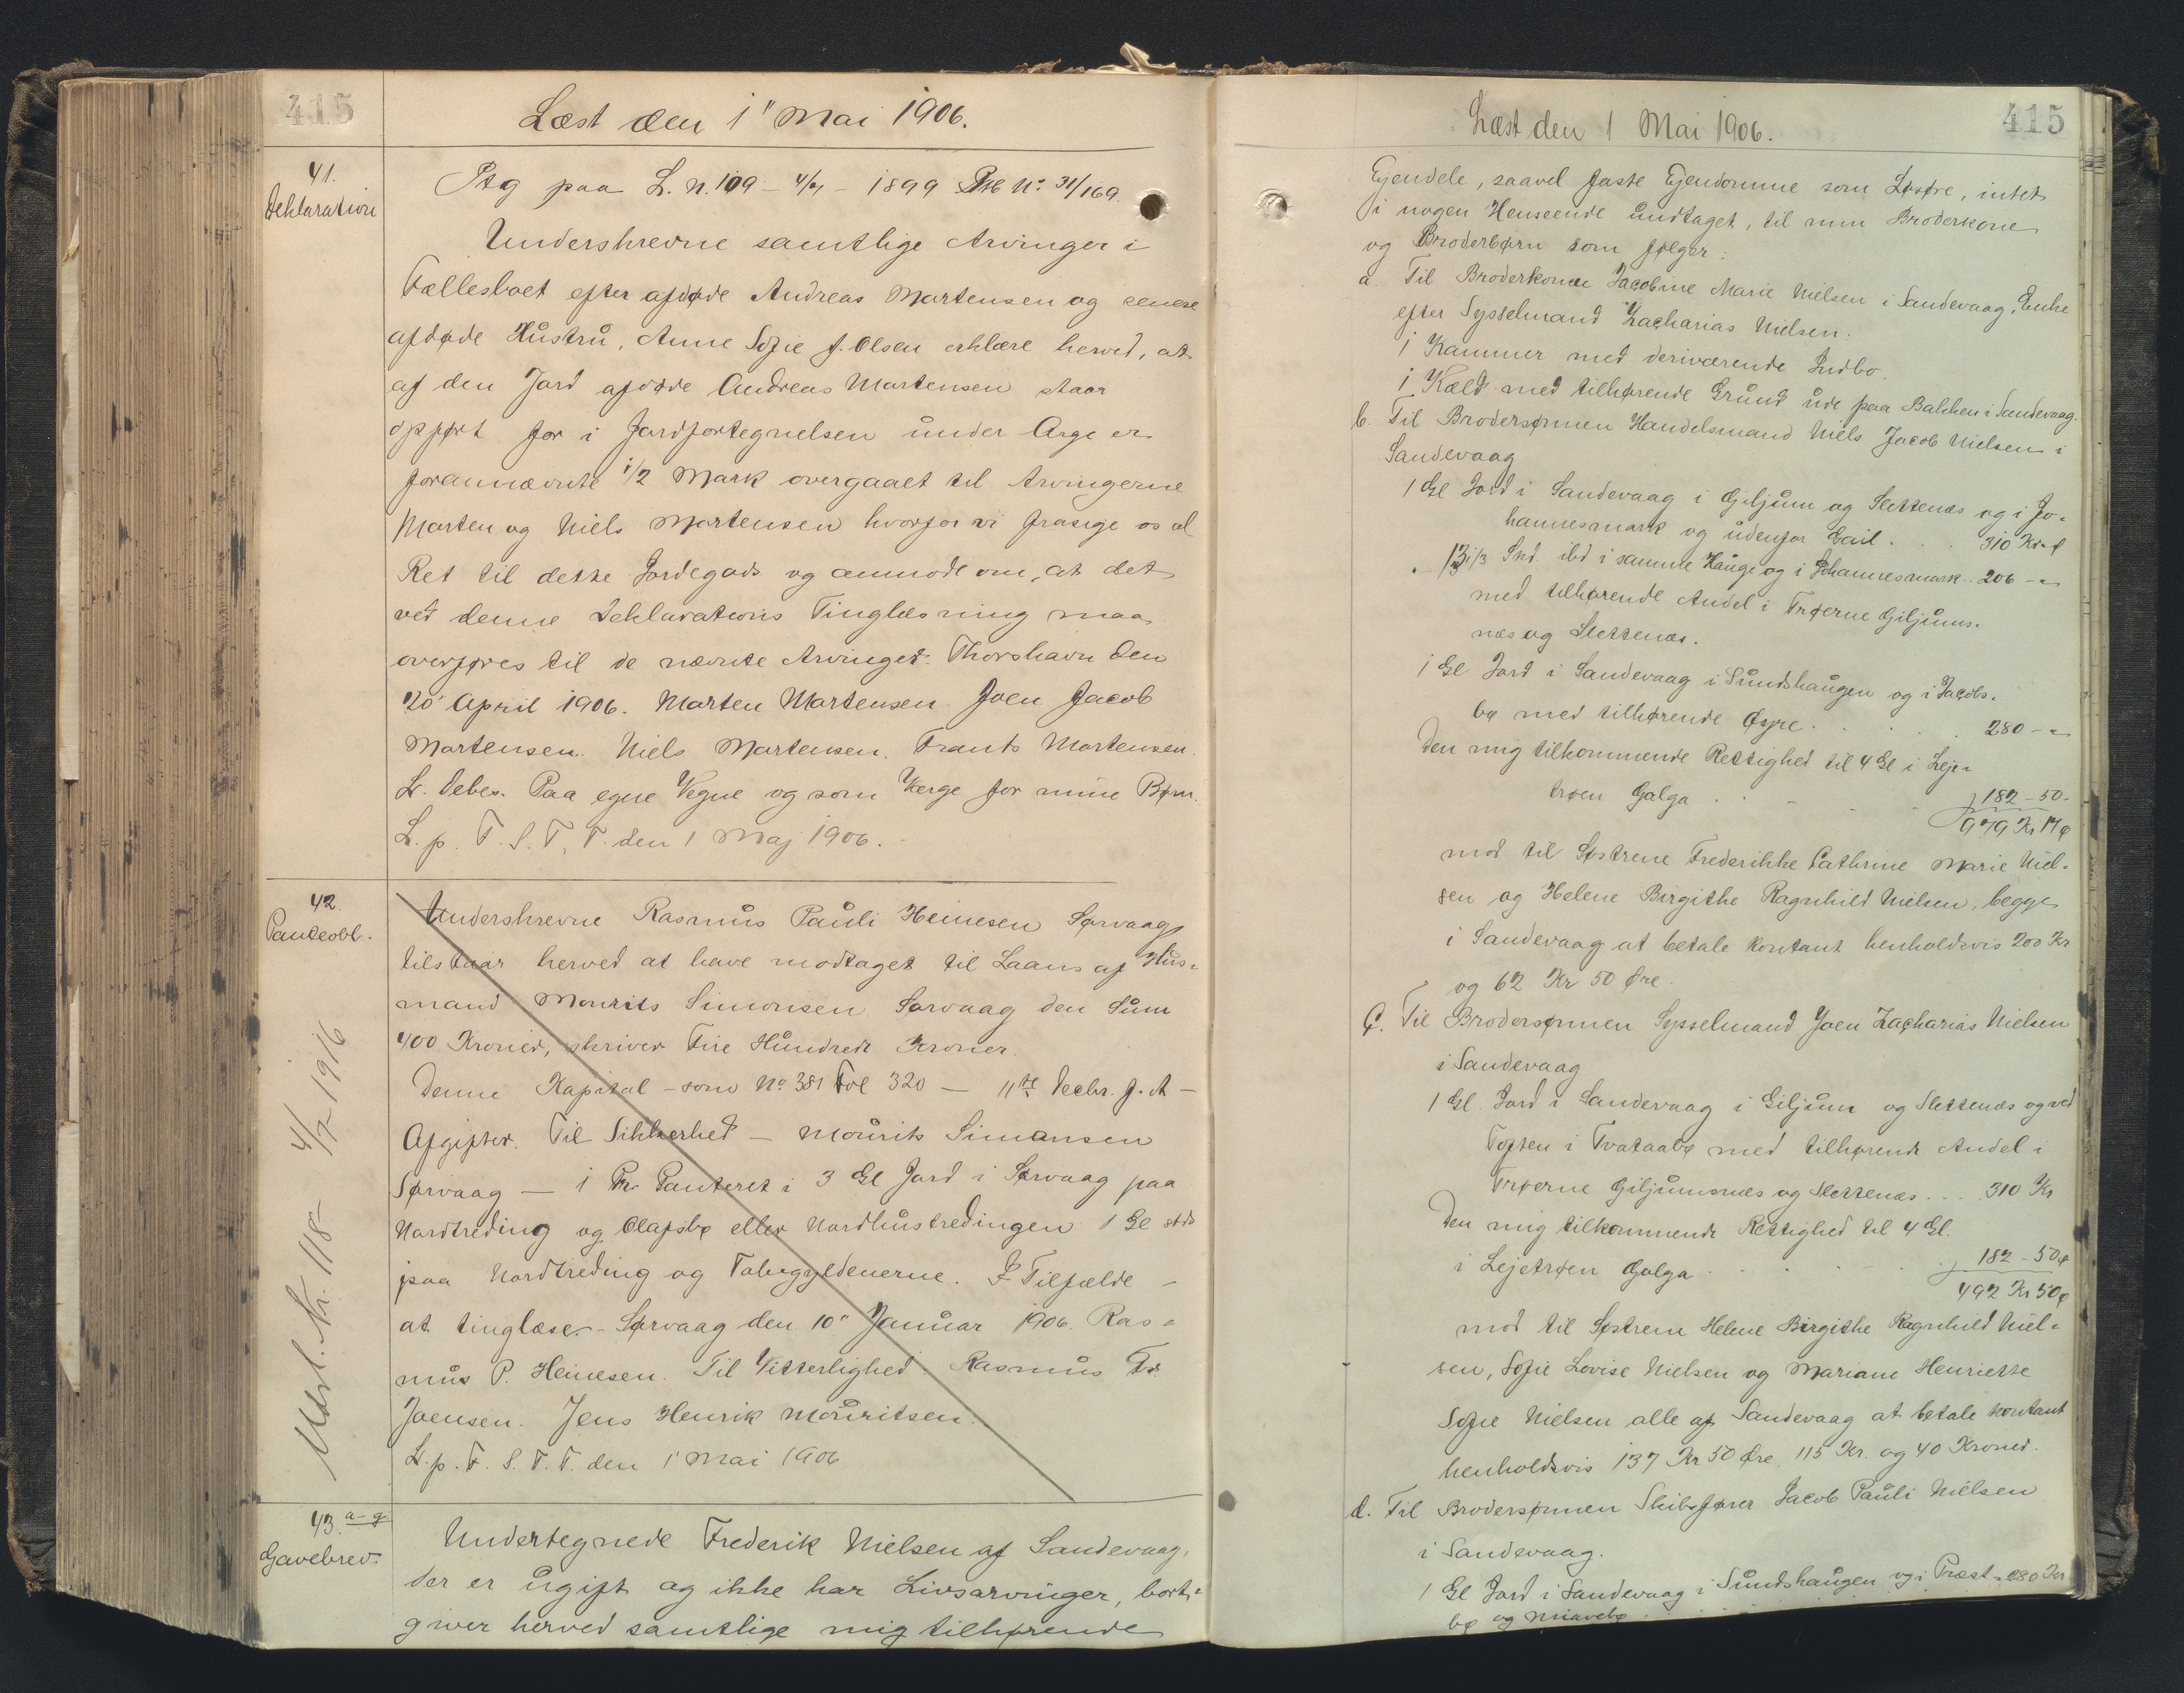 415
Læst den 1" Mai 1906.
41.
Deklaration
Ptg paa L. N. 109 - 4/7 - 1899 Ptb No. 31/169.
Underskrevne samtlige Arvinger i
Fællesboet efter afdøde Andreas Mortensen og senere
afdøde Hustru, Anne Sofie f. Olsen erklære herved, at
af den Jord afdøde Andreas Mortensen staar
opført for i Jordfortegnelsen under Arge er
forannævnte 1/2 Mark overgaaet til Arvingerne
Morten og Niels Mortensen hvorfor vi frasige os al
Ret til dette Jordegods og anmode om, at det
ved denne Deklarations Tinglæsning maa
overføres til de nævnte Arvinger. Thorshavn den
20' April 1906. Morten Mortensen. Joen Jacob
Mortensen. Niels Mortensen. Frants Mortensen.
L. Debes. Paa egne Vegne og som Værge for mine Børn.
L. p. F. S. T. T. den 1 Maj 1906.
42.
Panteobl.
Underskrevne Rasmus Pauli Heinesen Sørvaag
tilstaar herved at have modtaget til Laans af Hus-
mand Mourits Simonsen Sørvaag den Sum
400 Kroner, skriver Fire Hundrede Kroner.
Denne Kapital - som No. 381 Fol 320 - 11te Decbr. f. A -
Afgifter. Til Sikkerhed - Mourits Simonsen
Sørvaag - 1 Pr. Panteret i 3 Gl Jord i Sørvaag paa
Nordtreding og Olafsbø eller Nordhustredingen 1 Gl stds
paa Nordtreding og Tabugyldenerne. I Tilfælde -
at tinglæse. - Sørvaag den 10" Januar 1906. Ras-
mus P. Heinesen. Til Vitterlighed: Rasmus Fr.
Joensen. Jens Henrik Mouritsen.
L. p. F. S. T. T. den 1' Mai 1906
Udsl. Nr. 118 - 4/7 1916
43. a-g.
Gavebrev.
Undertegnede Frederik Nielsen af Sandevaag,
der er ugift og ikke har Livsarvinger, bort-
giver herved samtlige mig tilhørende
415
Læst den 1 Mai 1906.
Ejendele, saavel faste Ejendomme som Løsøre, intet
i nogen Henseende undtaget, til min Broderkone
og Broderbørn som følger:
a. Til Broderkone Jacobine Marie Nielsen i Sandevaag, Enke
efter Sysselmand Zacharias Nielsen:
1 Kammer med deriværende Indbo.
1 Kæld med tilhørende Grund ude paa Bakken i Sandevaag.
b. Til Brodersønnen Handelsmand Niels Jacob Nielsen i
Sandevaag
1 Gl Jord i Sandevaag i Giljum og Slettenæs og i Jo-
hannesmark og udenfor Gail . . 310 Kr. ø
" 13 1/3 Skd. ibd i samme Hauge og i Johannesmark.. 206 - "
med tilhørende Andel i Trøerne Giljums-
næs og Slettenæs.
1 Gl Jord i Sandevaag i Sundshaugen og i Jacobs-
bø med tilhørende Øyre . . . . 280 - "
Den mig tilkommende Rettighed til 4 Gl i Leje-
trøen Galga . . - - - 182 - 50 -
979 Kr 17 ø
mod til Søstrene Frederikke Cathrine Marie Niel-
sen og Helene Birgithe Ragnhild Nielsen, begge
i Sandevaag at betale kontant henholdsvis 200 Kr
og 62 Kr 50 Øre.
c. Til Brodersønnen Sysselmand Joen Zacharias Nielsen
i Sandevaag
1 Gl. Jord i Sandevaag i Giljum og Slettenæs og ved
Toften i Tvataabø med tilhørende Andel i
Trøerne Giljumsnæs og Slettenæs . . . 310 Kr
Den mig tilkommende Rettighed til 4 Gl.
i Lejetrøen Galga . . . . . 182 - 50 ø
492 Kr 50 ø
mod til Søstrene Helene Birgithe Ragnhild Niel-
sen, Sofie Lovise Nielsen og Mariane Henriette
Sofie Nielsen alle af Sandevaag at betale kontant
henholdsvis 137 Kr 50 Øre, 115 Kr. og 40 Kroner.
d. Til Brodersønnen Skibsfører Jacob Pauli Nielsen
i Sandevaag.
1 Gl Jord i Sandevaag i Sundshaugen og i Præst- 280 Kr
bø og Miavebø